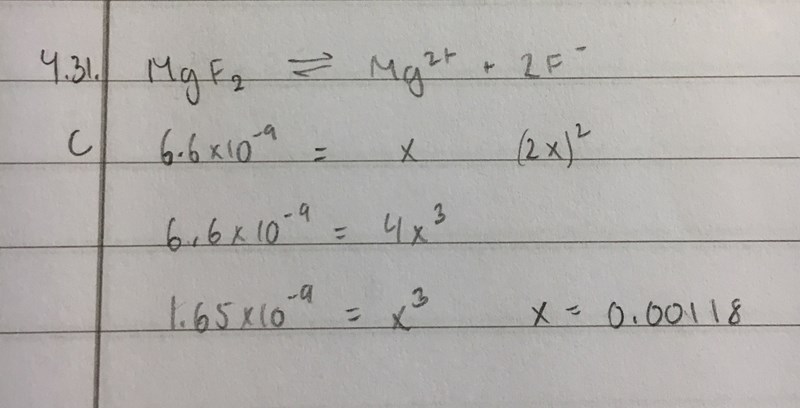 4.31. MgF₂ ⇌ Mg²⁺ + 2F⁻
C 6.6×10⁻⁹ = x (2x)²
6.6×10⁻⁹ = 4x³
1.65×10⁻⁹ = x³ x = 0.00118